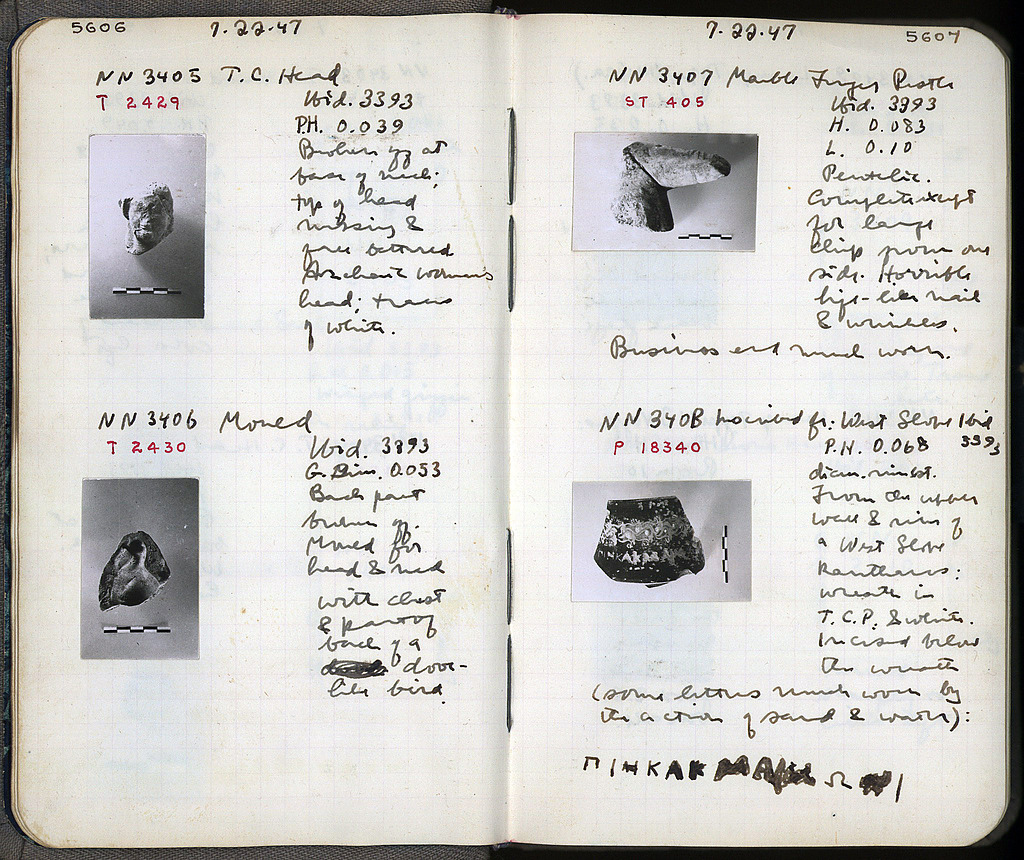 5606
7.22.47
NN 3405 T.C. Head
T 2429
Ibid. 3393
P.H. 0.039
Broken off at
base of neck;
top of head
missing &
face battered
Archaic woman's
head; traces
of white.
NN 3406 Mould
T 2430
Ibid. 3393
G. Dim. 0.053
Back part
broken off.
Mould for
head & neck
with chest
& part of
back of a
dove-
like bird.
7.22.47
5607
NN 3407 Marble Finger Pestle
ST 405
Ibid. 3393
H. 0.083
L. 0.10
Pentelic.
Complete except
for large
chip from one
side. Horrible
life-like nail
& wrinkles.
Business end much worn.
NN 3408 Inscribed fr. : West Slope Ibid
3393
P 18340
P.H. 0.068
diam. inest.
From the upper
wall & rim of
a West Slope
kantharos:
wreath in
T.C.P. & white.
Incised below
the wreath
(some letters much worn by
the action of sand & water):
ΠΙΗΚΑΚ Ω Ι